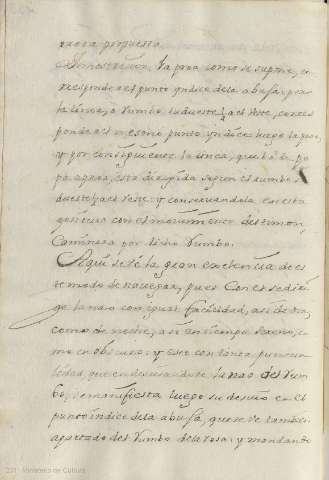 nueva propuesta
Demostracion. La proa como se supone, co
rresponde a el punto yndice de la abuja, pues
la linea, o Rumbo sudueste ¼ a el oeste, corres
ponde a el mesmo punto yndice luego la proa,
y por consiguiente la linea, que ba de po
pa a proa, esta dirigida segun el rumbo su
dueste ¼ a el oeste: y conservandola en esta
posicion con el movimiento del timon,
Caminara por dicho Rumbo.
Aqui se ve la gran excelencia de es
te modo de navegar, pues con el se diri
ge la nao con igual facilidad, asi de dia,
como de noche, asi en tiempo sereno, co
mo en obscuro: y esto con tanta puntua
lidad, que en desviandose la nao del Rum
bo, se manifiesta luego su desvio en el
punto indice de la abuja, que se ve tambien
apartado del Rumbo de la rosa: y mandando
231 Ministerio de Cultura